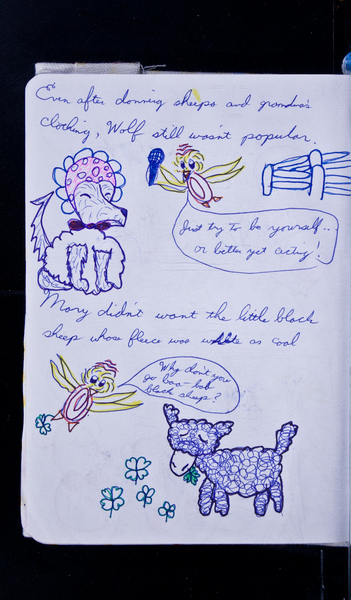 Even after donning sheeps and grandma's
clothing, Wolf still wasn't popular.
Just try to be yourself..
or better yet acting!
Mary didn't want the little black
sheep whose fleece was white as coal
Why don't you
go baa-bab
black sheep?